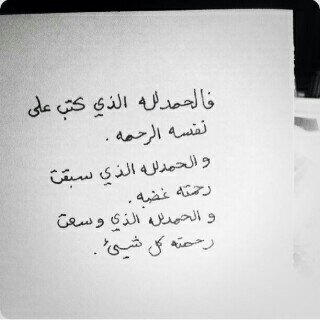 فالحمدلله الذي كتب على
نفسه الرحمه .
والحمدلله الذي سبقت
رحمته غضبه .
والحمدلله الذي وسعت
رحمته كل شيئ .